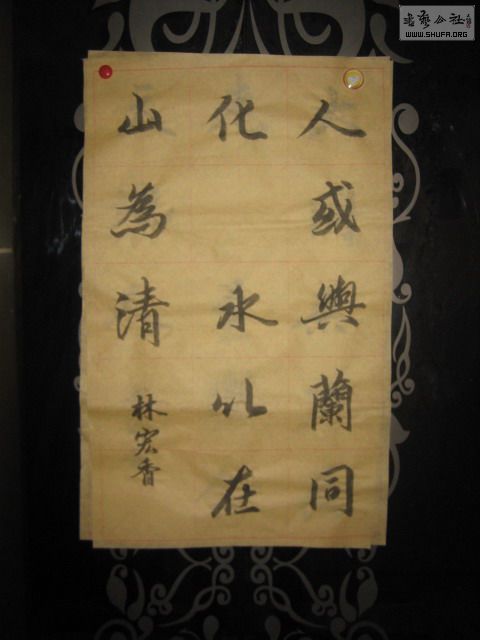 人或與蘭同
化 水以在
山為清
林宏香
書藝公社
WWW.SHUFA.ORG